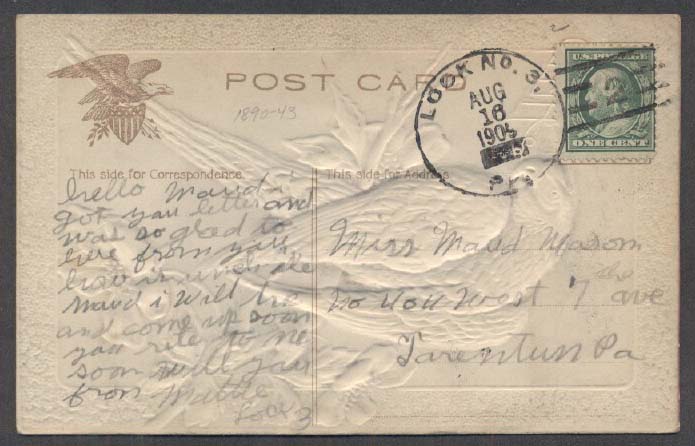 POST CARD
1890-43
LOCK No. 3.
AUG
16
190
PA
U.S. POSTAGE
ONE CENT
This side for Correspondence.
This side for Address.
hello Maud i
got you letter and
was so glad to
here from you
how is uncle
Maud i will
and come up soon
you rite to me
soon will you
from Mattie
Lock 3
Miss Maud Mason
No You West 7 the ave
Tarentum Pa